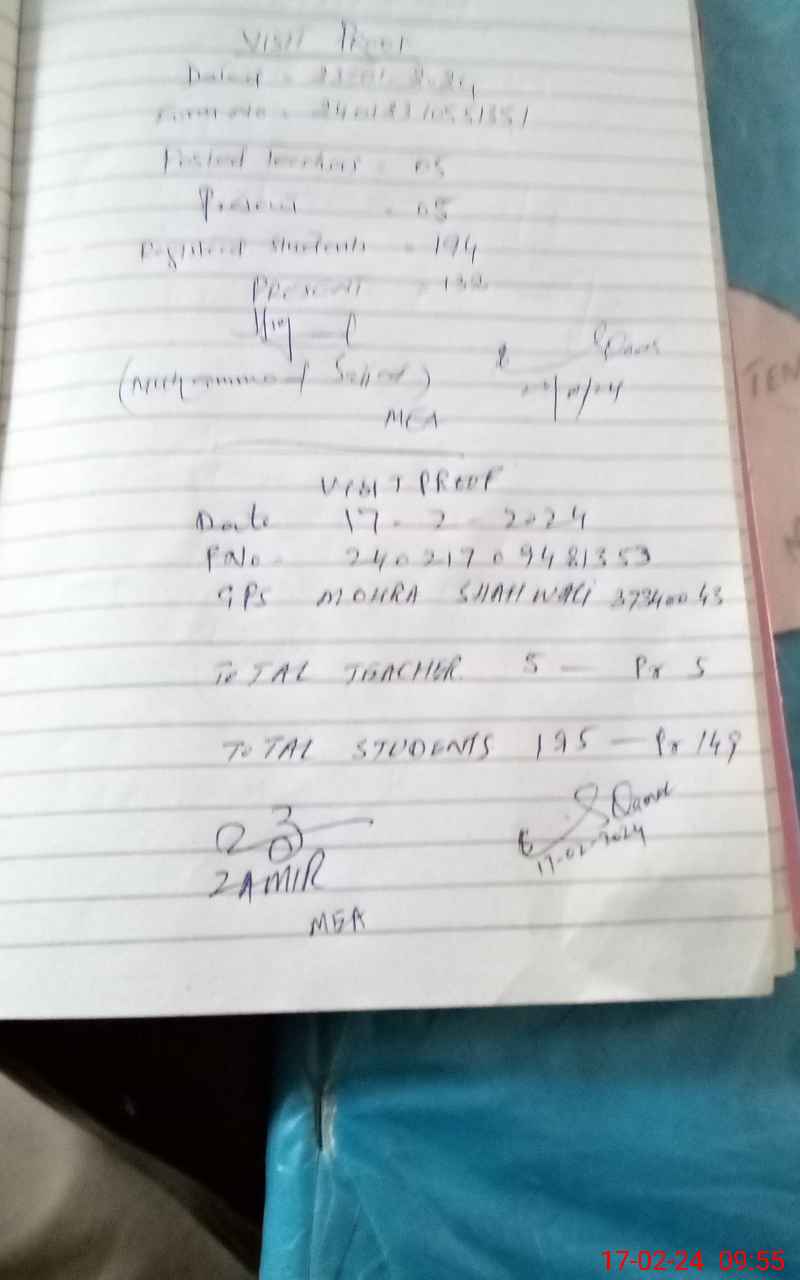 VISIT PROOF
Dated =
Form No = 24012310551351
Posted Teachers = 05
Present = 05
Registered Students = 194
PRESENT = 132
(Muhammad Sajjad)
MEA
VISIT PROOF
Date 17-2-2024
F No. 24021709481353
GPS MOHRA SHAH WALI 37340043
TOTAL TEACHER 5 — Pr 5
TOTAL STUDENTS 195 — Pr 149
17-02-2024
ZAMIR
MEA
TEN
17-02-24 09:55